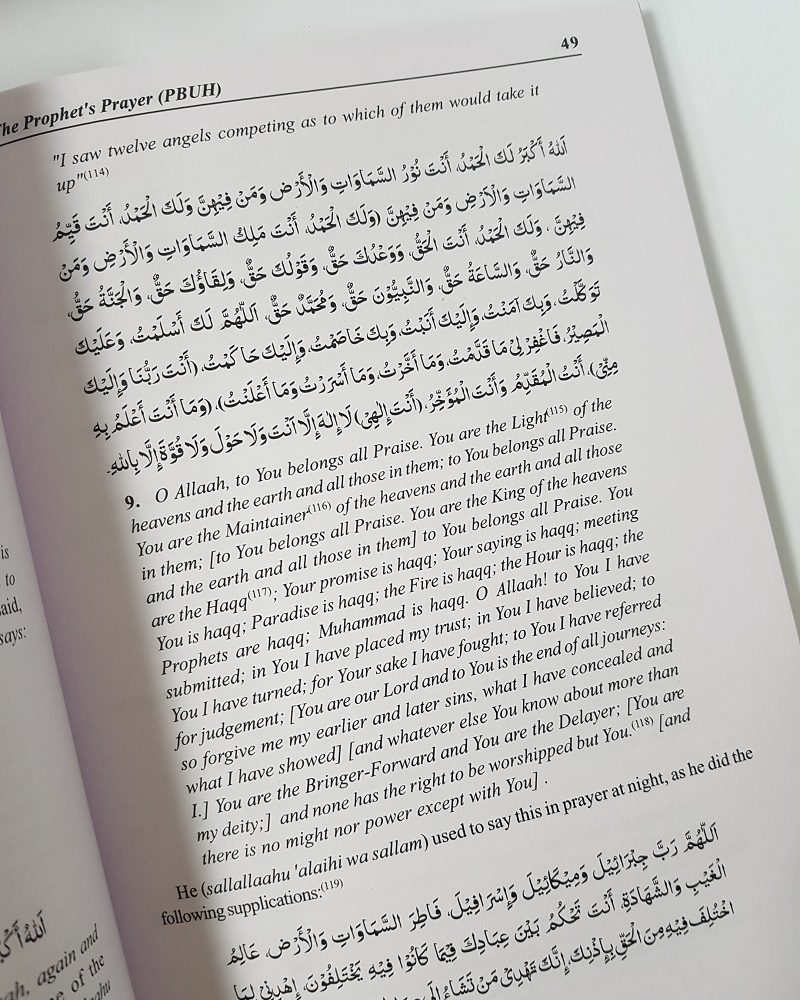 49
The Prophet's Prayer (PBUH)
"I saw twelve angels competing as to which of them would take it
up"(114)
اَللّٰهُ أَكْبَرُ لَكَ الْحَمْدُ، أَنْتَ نُوْرُ السَّمَاوَاتِ وَالْأَرْضِ وَمَنْ فِيْهِنَّ وَلَكَ الْحَمْدُ، أَنْتَ قَيِّمُ
السَّمَاوَاتِ وَالْاَرْضِ وَمَنْ فِيْهِنَّ (وَلَكَ الْحَمْدُ، أَنْتَ مَلِكُ السَّمَاوَاتِ وَالْأَرْضِ وَمَنْ
فِيْهِنَّ ، وَلَكَ الْحَمْدُ، أَنْتَ الْحَقُّ، وَوَعْدُكَ حَقٌّ، وَقَوْلُكَ حَقٌّ، وَلِقَاؤُكَ حَقٌّ، وَالْجَنَّةُ حَقٌّ،
وَالنَّارُ حَقٌّ، وَالسَّاعَةُ حَقٌّ، وَالنَّبِيُّوْنَ حَقٌّ، وَمُحَمَّدٌ حَقٌّ، اَللّٰهُمَّ لَكَ أَسْلَمْتُ، وَعَلَيْكَ
تَوَكَّلْتُ، وَبِكَ آمَنْتُ، وَإِلَيْكَ أَنَبْتُ، وَبِكَ خَاصَمْتُ، وَإِلَيْكَ حَاكَمْتُ، (أَنْتَ رَبُّنَا وَإِلَيْكَ
الْمَصِيْرُ، فَاغْفِرْ لِيْ مَا قَدَّمْتُ، وَمَا أَخَّرْتُ، وَمَا أَسْرَرْتُ وَمَا أَعْلَنْتُ)، (وَمَا أَنْتَ أَعْلَمُ بِهِ
مِنِّيْ)، أَنْتُ الْمُقَدِّمُ وَأَنْتَ الْمُؤَخِّرُ، (أَنْتَ إِلٰهِيْ) لَا إِلٰهَ إِلَّا أَنْتَ وَلَا حَوْلَ وَلَا قُوَّةَ إِلَّا بِاللهِ.
9. O Allaah, to You belongs all Praise. You are the Light(115) of the
heavens and the earth and all those in them; to You belongs all Praise.
You are the Maintainer(116) of the heavens and the earth and all those
in them; [to You belongs all Praise. You are the King of the heavens
and the earth and all those in them] to You belongs all Praise. You
are the Haqq(117); Your promise is haqq; Your saying is haqq; meeting
You is haqq; Paradise is haqq; the Fire is haqq; the Hour is haqq; the
Prophets are haqq; Muhammad is haqq. O Allaah! to You I have
submitted; in You I have placed my trust; in You I have believed; to
You I have turned; for Your sake I have fought; to You I have referred
for judgement; [You are our Lord and to You is the end of all journeys:
so forgive me my earlier and later sins, what I have concealed and
what I have showed] [and whatever else You know about more than
I.] You are the Bringer-Forward and You are the Delayer; [You are
my deity;] and none has the right to be worshipped but You.(118) [and
there is no might nor power except with You] .
He (sallallaahu 'alaihi wa sallam) used to say this in prayer at night, as he did the
following supplications:(119)
اَللّٰهُمَّ رَبَّ جِبْرَائِيْلَ وَمِيْكَائِيْلَ وَإِسْرَافِيْلَ، فَاطِرَ السَّمَاوَاتِ وَالْأَرْضِ، عَالِمُ
الْغَيْبِ وَالشَّهَادَةِ، أَنْتَ تَحْكُمُ بَيْنَ عِبَادِكَ فِيْمَا كَانُوْا فِيْهِ يَخْتَلِفُوْنَ، إِهْدِنِيْ لِمَا
اخْتُلِفَ فِيْهِ مِنَ الْحَقِّ بِإِذْنِكَ، إِنَّكَ تَهْدِيْ مَنْ تَشَاءُ إِلَى
is
to
said,
says:
اَللّٰهُ
again and
e of the